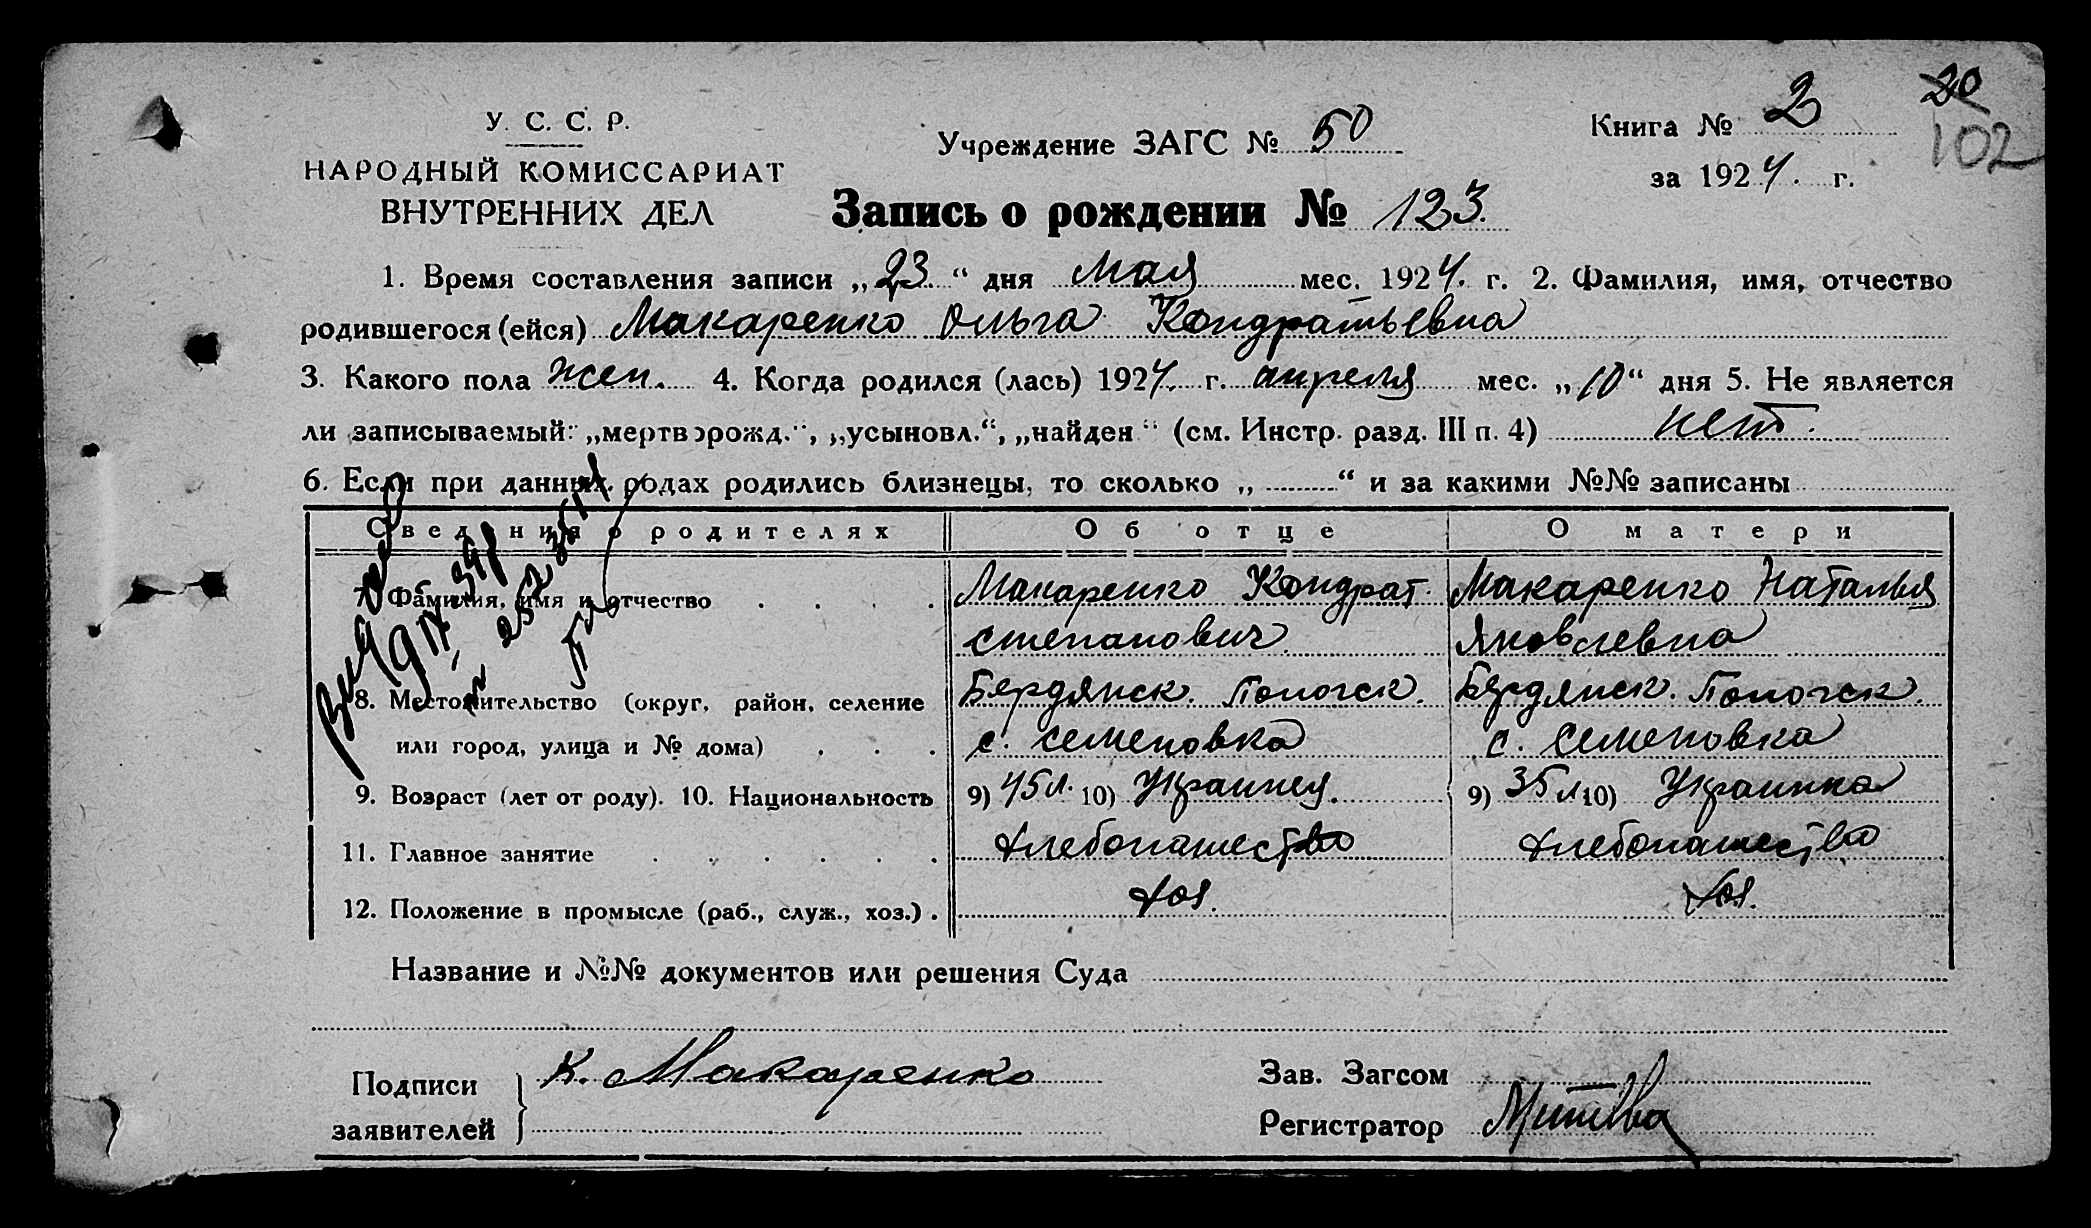 20
102
У. С. С. Р.
НАРОДНЫЙ КОМИССАРИАТ
ВНУТРЕННИХ ДЕЛ
Учреждение ЗАГС № 50
Книга № 2
за 1924. г.
Запись о рождении № 123.
1. Время составления записи „23“ дня Мая мес. 1924. г. 2. Фамилия, имя, отчество
родившегося (ейся) Макаренко Ольга Кондратьевна
3. Какого пола жен. 4. Когда родился (лась) 1924. г. апреля мес. „10“ дня 5. Не является
ли записываемый: „мертворожд.“, „усыновл.“, „найден“ (см. Инстр. разд. III п. 4) нет.
6. Если при данных родах родились близнецы, то сколько „ “ и за какими №№ записаны
Сведения о родителях Об отце О матери
7. Фамилия, имя и отчество . . . . Макаренко Кондрат. Макаренко Наталья
Степанович Яковлевна
8. Местожительство (округ, район, селение Бердянск. Пологск. Бердянск. Пологск.
или город, улица и № дома) . . . с. Семеновка с. Семеновка
9. Возраст (лет от роду). 10. Национальность 9) 45 л. 10) Украинец. 9) 35 л. 10) Украинка
11. Главное занятие . . . . . . Хлебопашество Хлебопашество
12. Положение в промысле (раб., служ., хоз.) . хоз. хоз.
Название и №№ документов или решения Суда
Подписи К. Макаренко Зав. Загсом
заявителей Регистратор